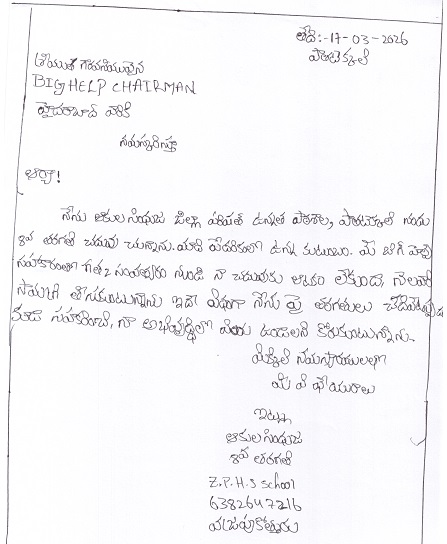 తేది:-17-03-2026
పాతటెక్కలి
శ్రీయుత గౌరవనీయులైన
BIGHELP CHAIRMAN
హైదరాబాద్ వారికి
నమస్కరిస్తూ
ఆర్యా!
నేను ఆకుల సింధుజ జిల్లా పరిషత్ ఉన్నత పాఠశాల, పాతటెక్కలి నందు
8వ తరగతి చదువు చున్నాను. మాది పేదరికంలో ఉన్న కుటుంబం. మీ బిగ్ హెల్ప్
సహకారంతో గత 2 సంవత్సరం నుండి నా చదువుకు ఆటంకం లేకుండ,
సామగ్రి తీసుకుంటున్నాను ఇదే విధంగా నేను పై తరగతులు
కూడా సహకరించి, నా అభివృద్ధిలో మీరు ఉండాలని కోరుకుంటున్నాను.
నమస్కారములతో
మీ విధేయురాలు
ఇట్లు
ఆకుల సింధుజ
8వ తరగతి
Z.P.H.S school
6382647216
వజ్రపుకొత్తూరు